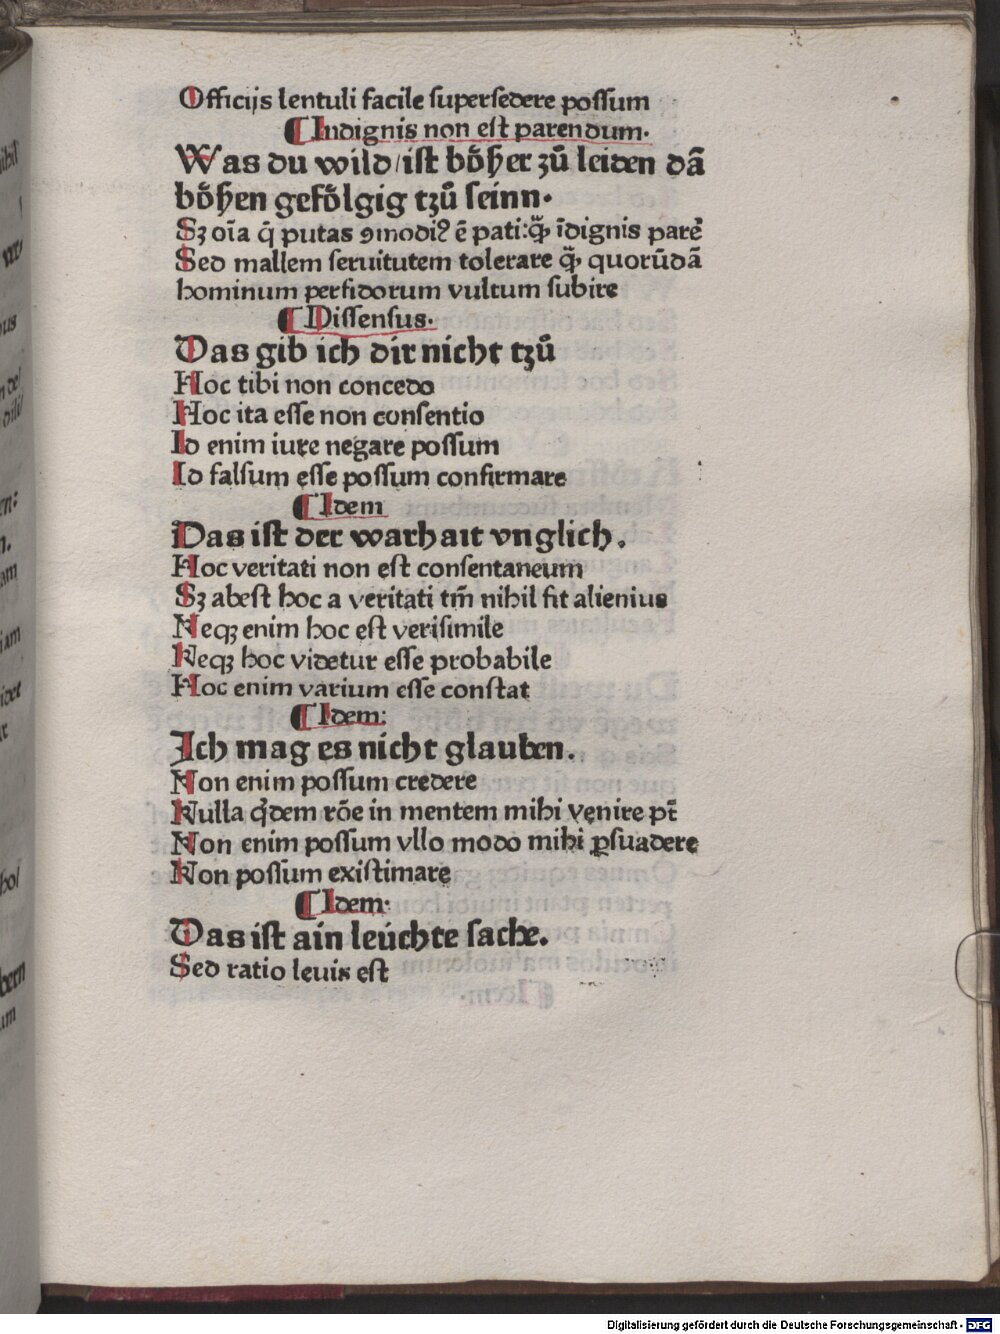 Officijs lentuli facile ſuperſedere poſſum
¶ Indignis non eſt parendum.
Was du wild/iſt boͤßer zuͦ leiden dā
boͤßen gefoͤlgig tzuͦ ſeinn.
Sꝫ oīa q̄ putas ꝯmodiꝰ ē pati: q̄ꝫ īdignis parē
Sed mallem ſeruitutem tolerare q̄ꝫ quorūdā
hominum perfidorum vultum ſubire
¶ Diſſenſus.
Das gib ich dir nicht tzuͦ
Hoc tibi non concedo
Hoc ita eſſe non conſentio
Id enim iure negare poſſum
Id falſum eſſe poſſum confirmare
¶ Idem
Das iſt der warhait vnglich.
Hoc veritati non eſt conſentaneum
Sꝫ abeſt hoc a veritati tm̄ nihil fit alienius
Neqꝫ enim hoc eſt veriſimile
Neqꝫ hoc videtur eſſe probabile
Hoc enim varium eſſe conſtat
¶ Idem:
Ich mag es nicht glauben.
Non enim poſſum credere
Nulla qͥdem rōe in mentem mihi venire pt̄
Non enim poſſum vllo modo mihi ꝑſuadere
Non poſſum exiſtimare
¶ Idem:
Das iſt ain leuchte ſache.
Sed ratio leuis eſt
Digitalisierung gefördert durch die Deutsche Forschungsgemeinschaft - DFG